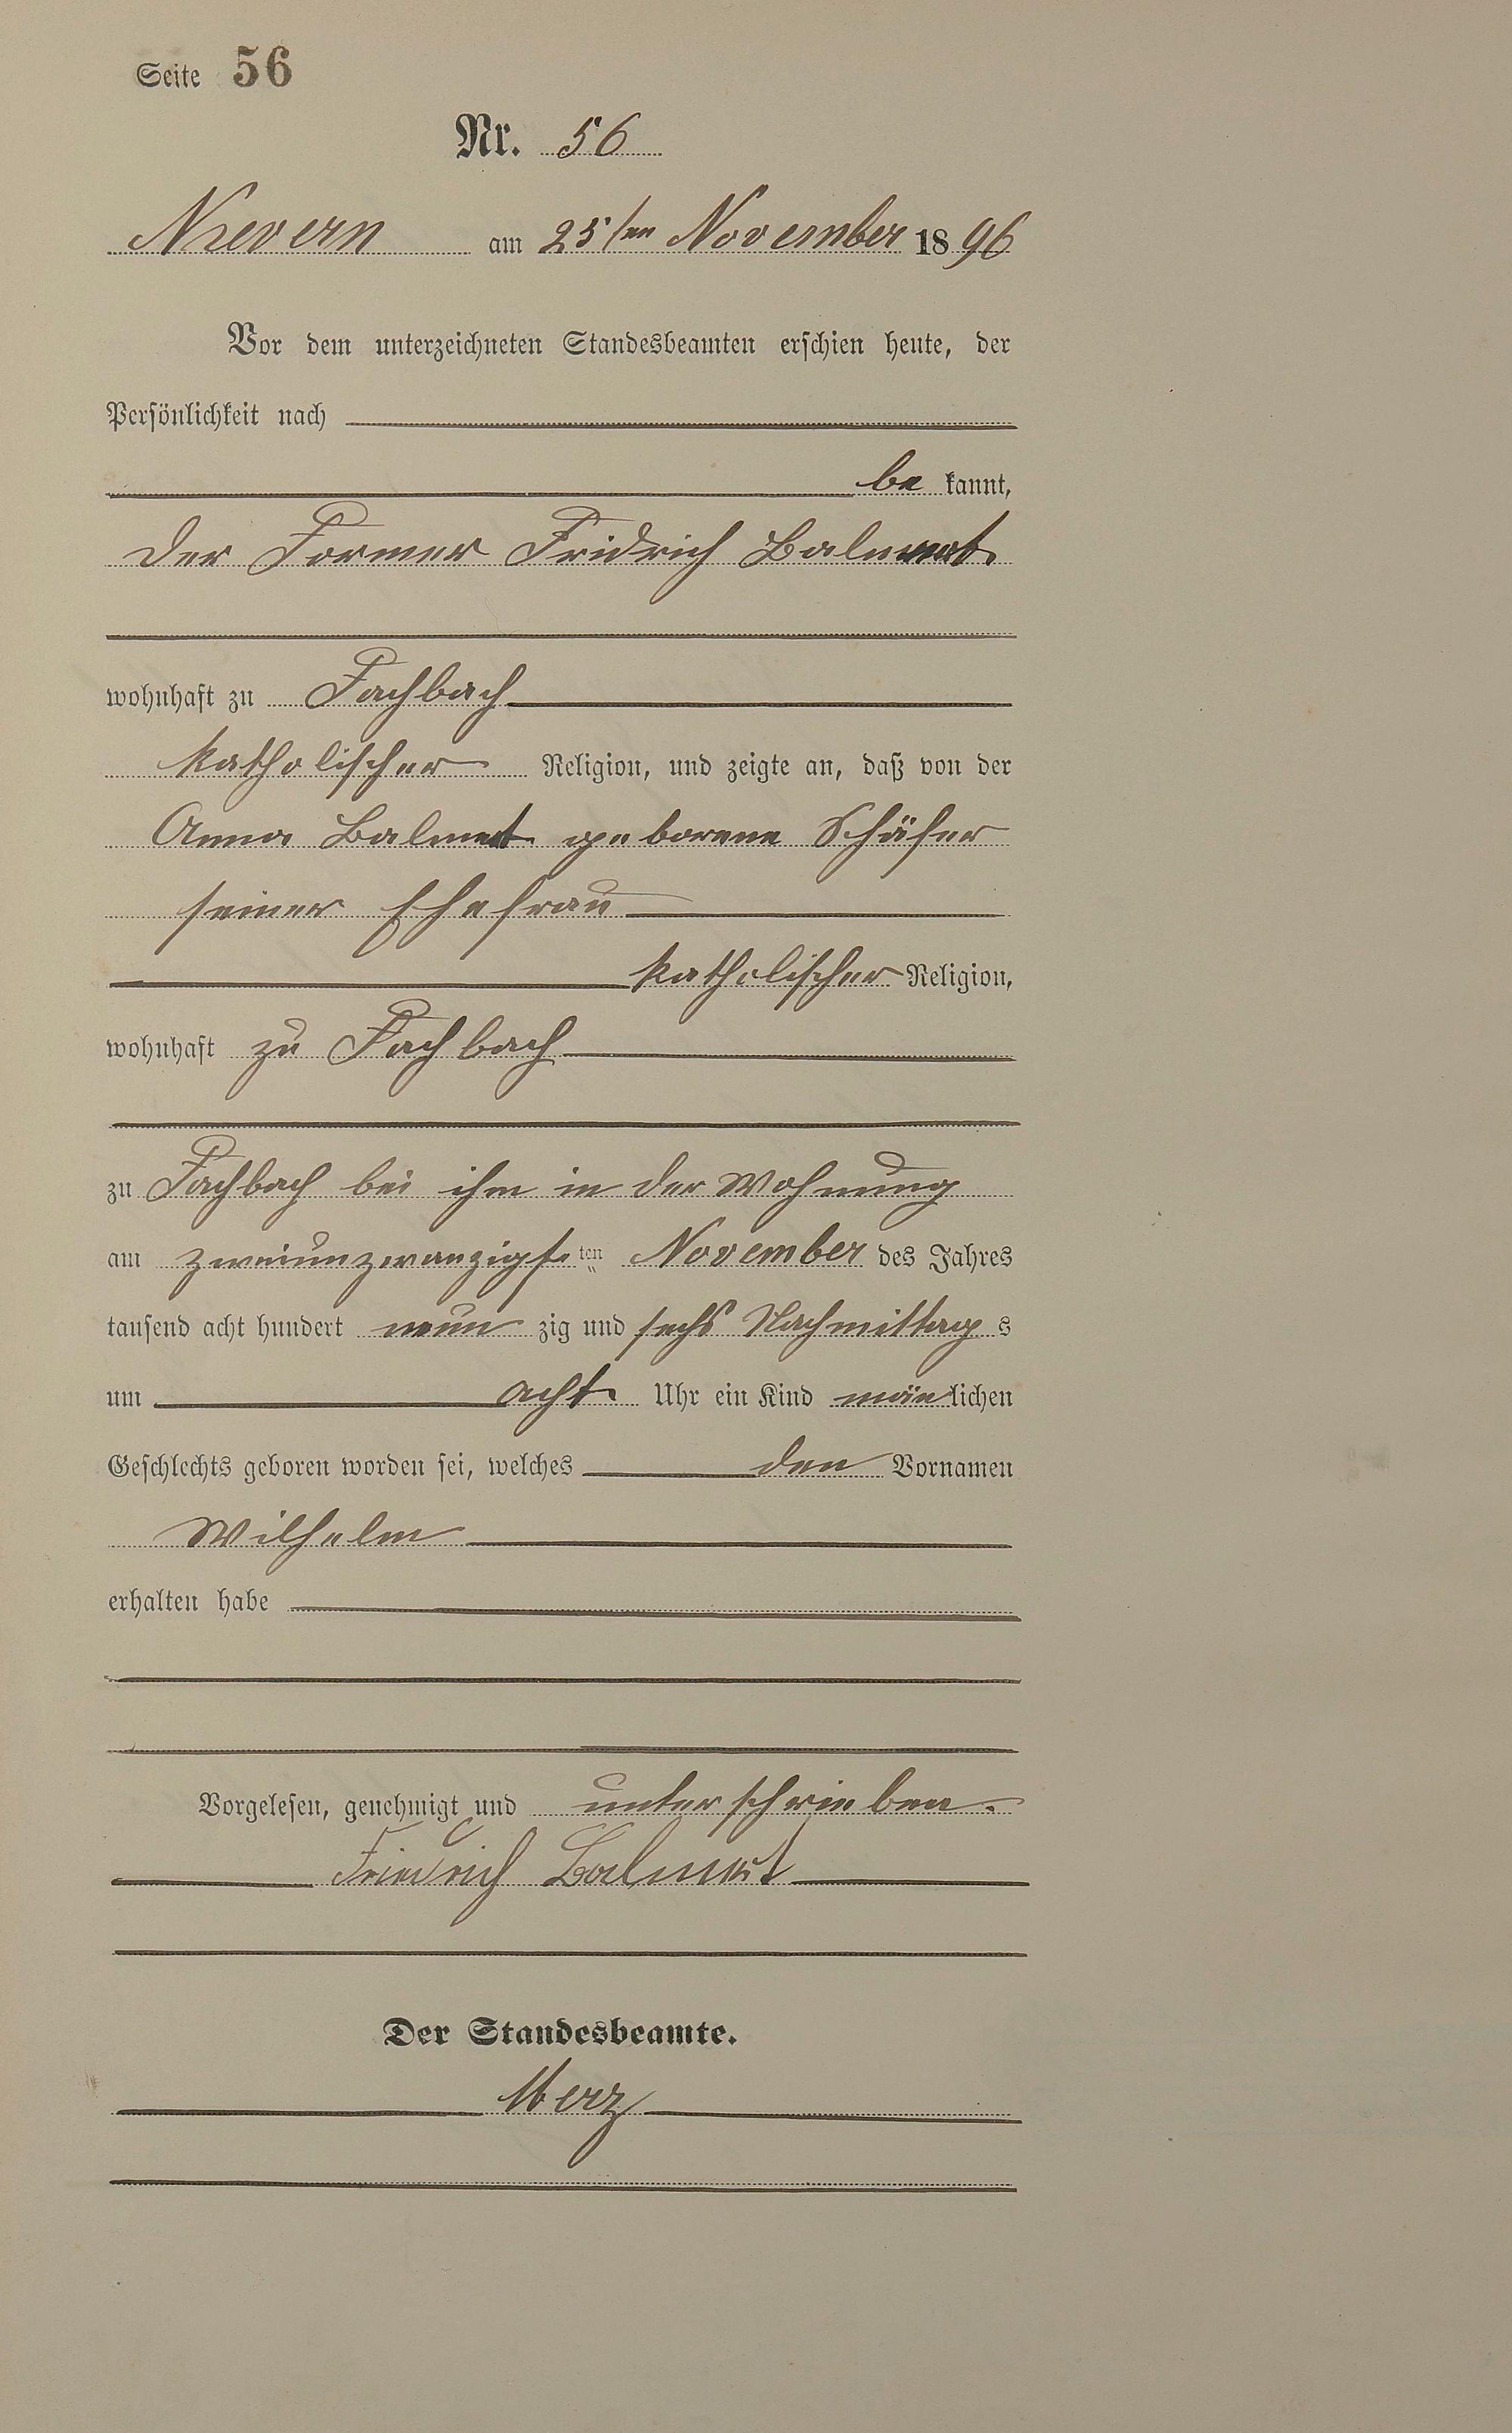 Seite 56
Nr. 56
Nievern am 25ten November 1896
Vor dem unterzeichneten Standesbeamten erschien heute, der
Persönlichkeit nach
bekannt,
der Former Fridrich Balmert
wohnhaft zu Fachbach
katholischer Religion, und zeigte an, daß von der
Anna Balmert geborene Schäfer
seiner Ehefrau
katholischer Religion,
wohnhaft zu Fachbach
zu Fachbach bei ihm in der Wohnung
am zweiunzwanzigsten November des Jahres
tausend acht hundert neunzig und sechs Nachmittags
um acht Uhr ein Kind mänlichen
Geschlechts geboren worden sei, welches den Vornamen
Wilhelm
erhalten habe
Vorgelesen, genehmigt und unterschrieben.
Friedrich Balmert
Der Standesbeamte.
Merz